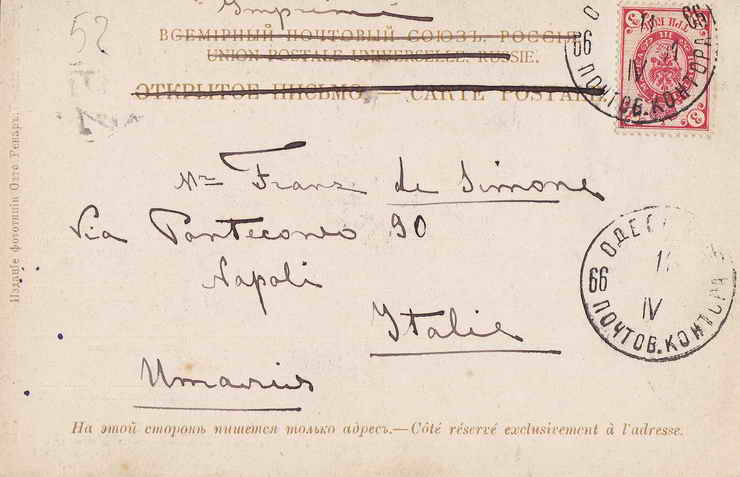 Imprimé
52
ВСЕМІРНЫЙ ПОЧТОВЫЙ СОЮЗЪ. РОССІЯ.
UNION POSTALE UNIVERSELLE. RUSSIE.
ОТКРЫТОЕ ПИСЬМО. — CARTE POSTALE.
66 ПОЧТОВ. КОНТОРА
IV
3 3
Mr Franz de Simone
Via Pontecorvo 90
Napoli
Italie
Италія
ОДЕС
66 ПОЧТОВ. КОНТОРА
11
IV
На этой сторонѣ пишется только адресъ.—Côté réservé exclusivement à l'adresse.
Изданіе фототипіи Отто Ренаръ.